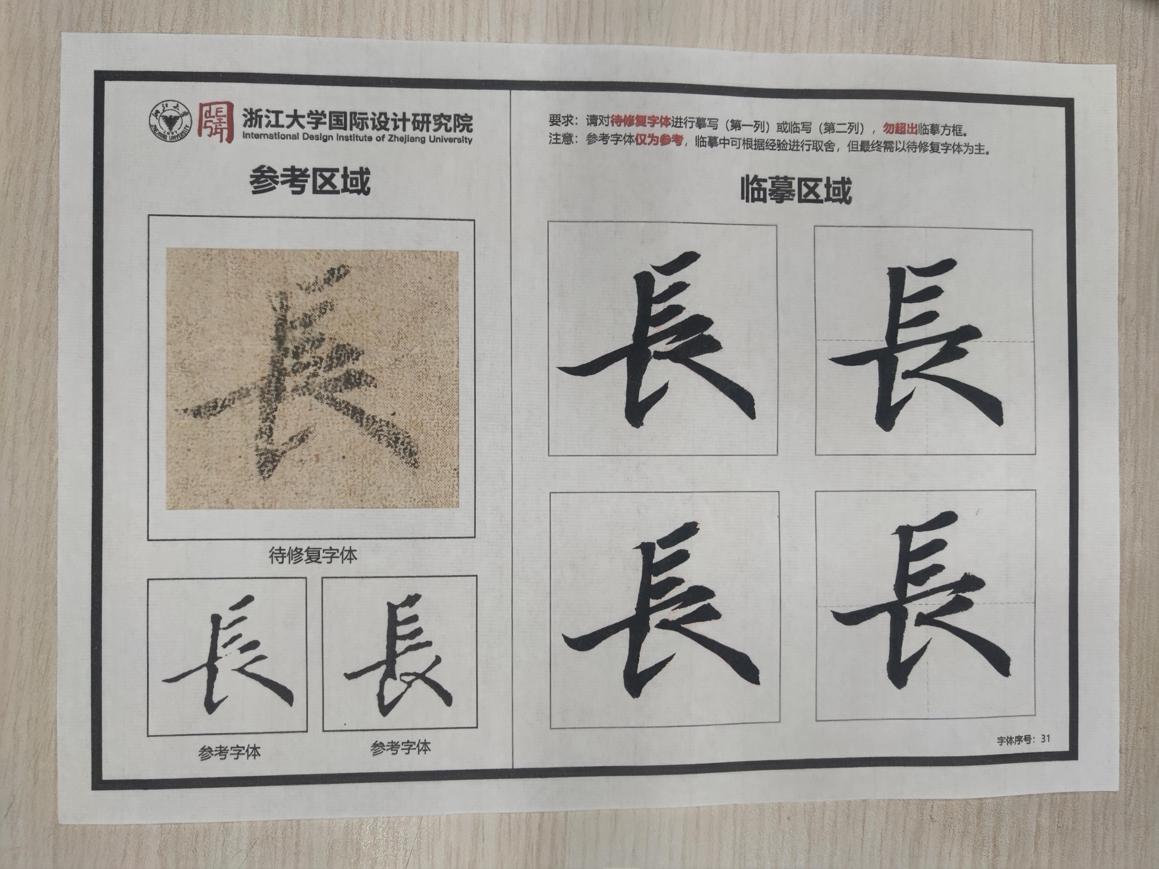 浙江大学国际设计研究院
International Design Institute of Zhejiang University
参考区域
長
待修复字体
長 長
参考字体 参考字体
要求：请对待修复字体进行摹写（第一列）或临写（第二列），勿超出临摹方框。
注意：参考字体仅为参考，临摹中可根据经验进行取舍，但最终需以待修复字体为主。
临摹区域
長 長
長 長
字体序号：31